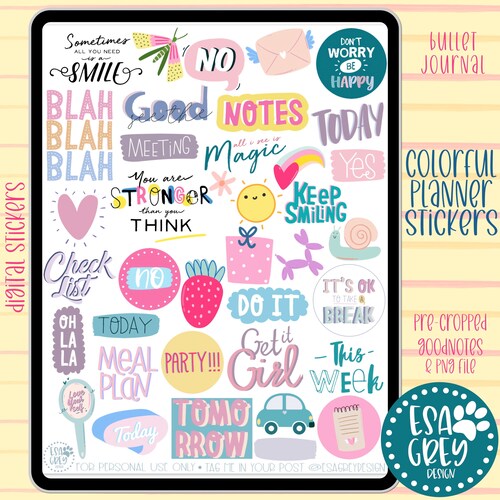 Sometimes
ALL YOU NEED
IS A
SMILE
NO
DON'T
WORRY
BE
HAPPY
bullet
journal
BLAH
BLAH
BLAH
Good
for the
NOTES
TODAY
MEETING
all i see is
Magic
YES
COLORFUL
PLANNER
STICKERS
digital stickers
You are
STRONGER
than you
THINK
KEEP
SMILING
Check
List
NO
DO IT
IT'S OK
TO TAKE
A
BREAK
OH
LA
LA
TODAY
MEAL
PLAN
PARTY!!!
Get it
Girl
This
WEEK
PRE-CROPPED
GOODNOTES
& PNG FILE
Love
Your
Self
Today
TOMO
RROW
ESA
GREY
DESIGN
ESA
GREY
DESIGN
FOR PERSONAL USE ONLY • TAG ME IN YOUR POST @ESAGREYDESIGN